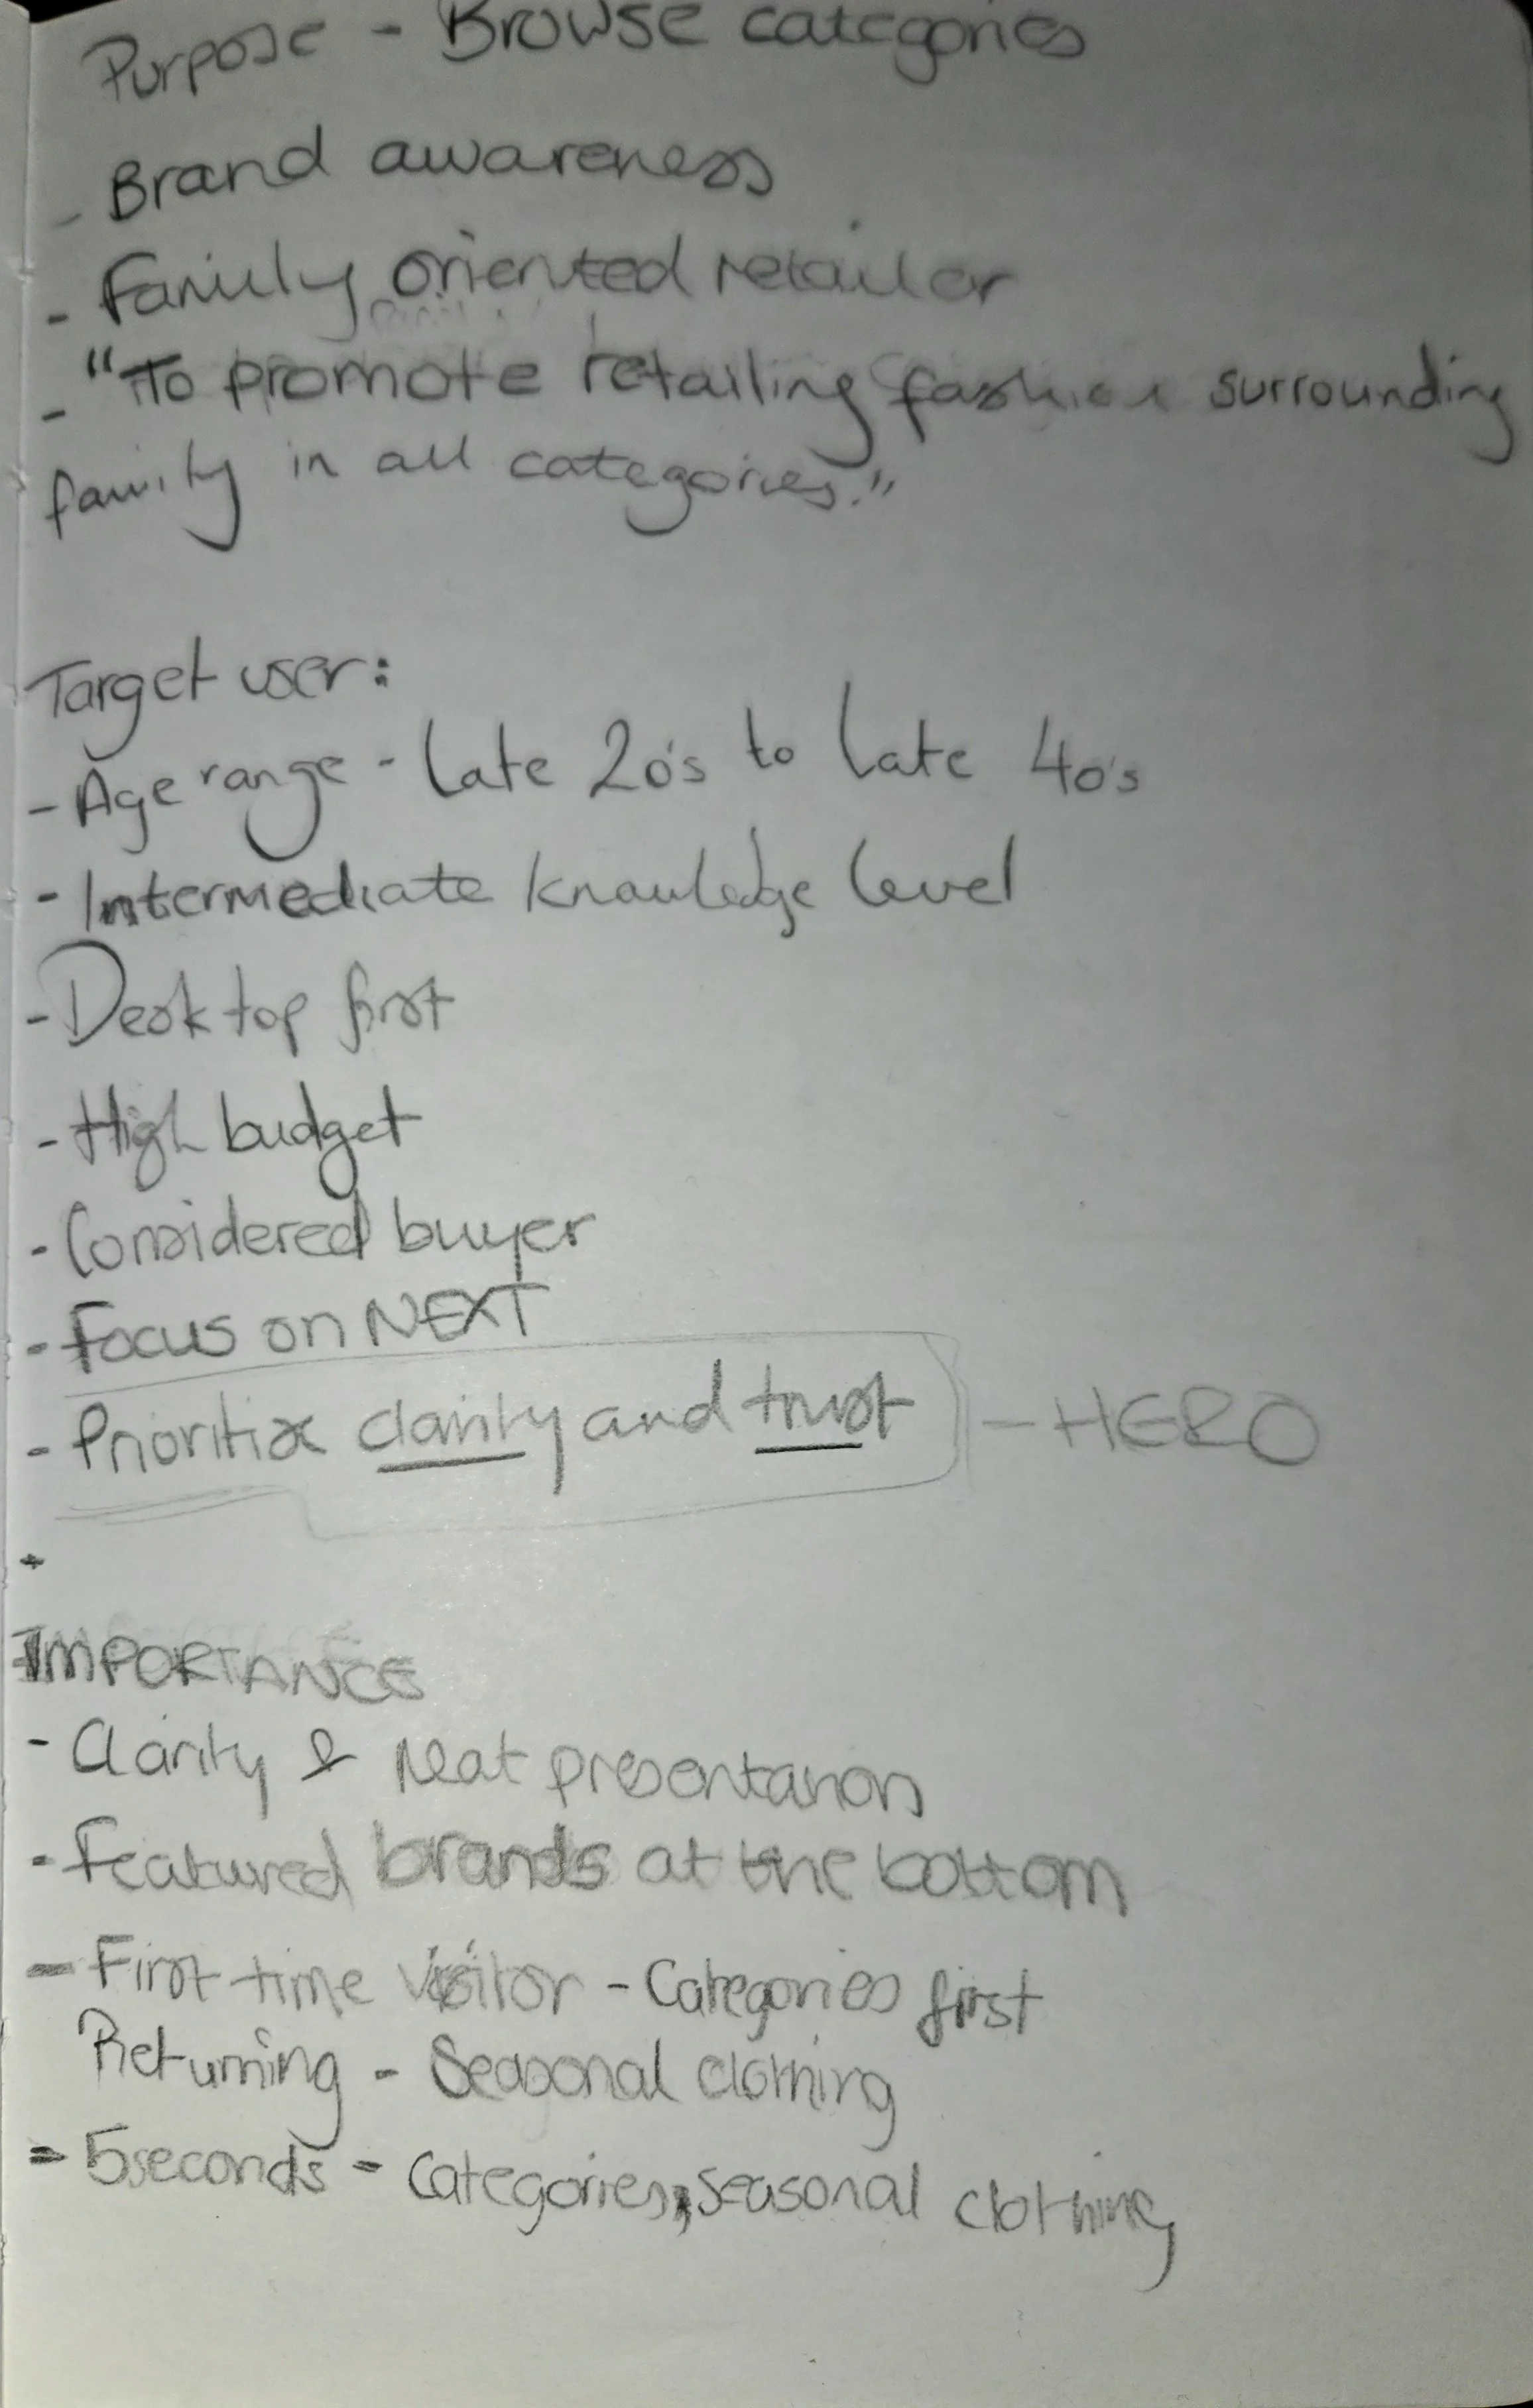 Purpose - Browse categories
- Brand awareness
- Family oriented retailer
- "To promote retailing fashion surrounding
family in all categories."
Target user:
- Age range - late 20's to late 40's
- Intermediate knowledge level
- Desktop first
- High budget
- Considered buyer
- Focus on NEXT
- Prioritise clarity and trust - HERO
IMPORTANCE
- Clarity & Neat presentation
- Featured brands at the bottom
- First time visitor - Categories first
Returning - Seasonal clothing
- 5seconds - Categories, seasonal clothing